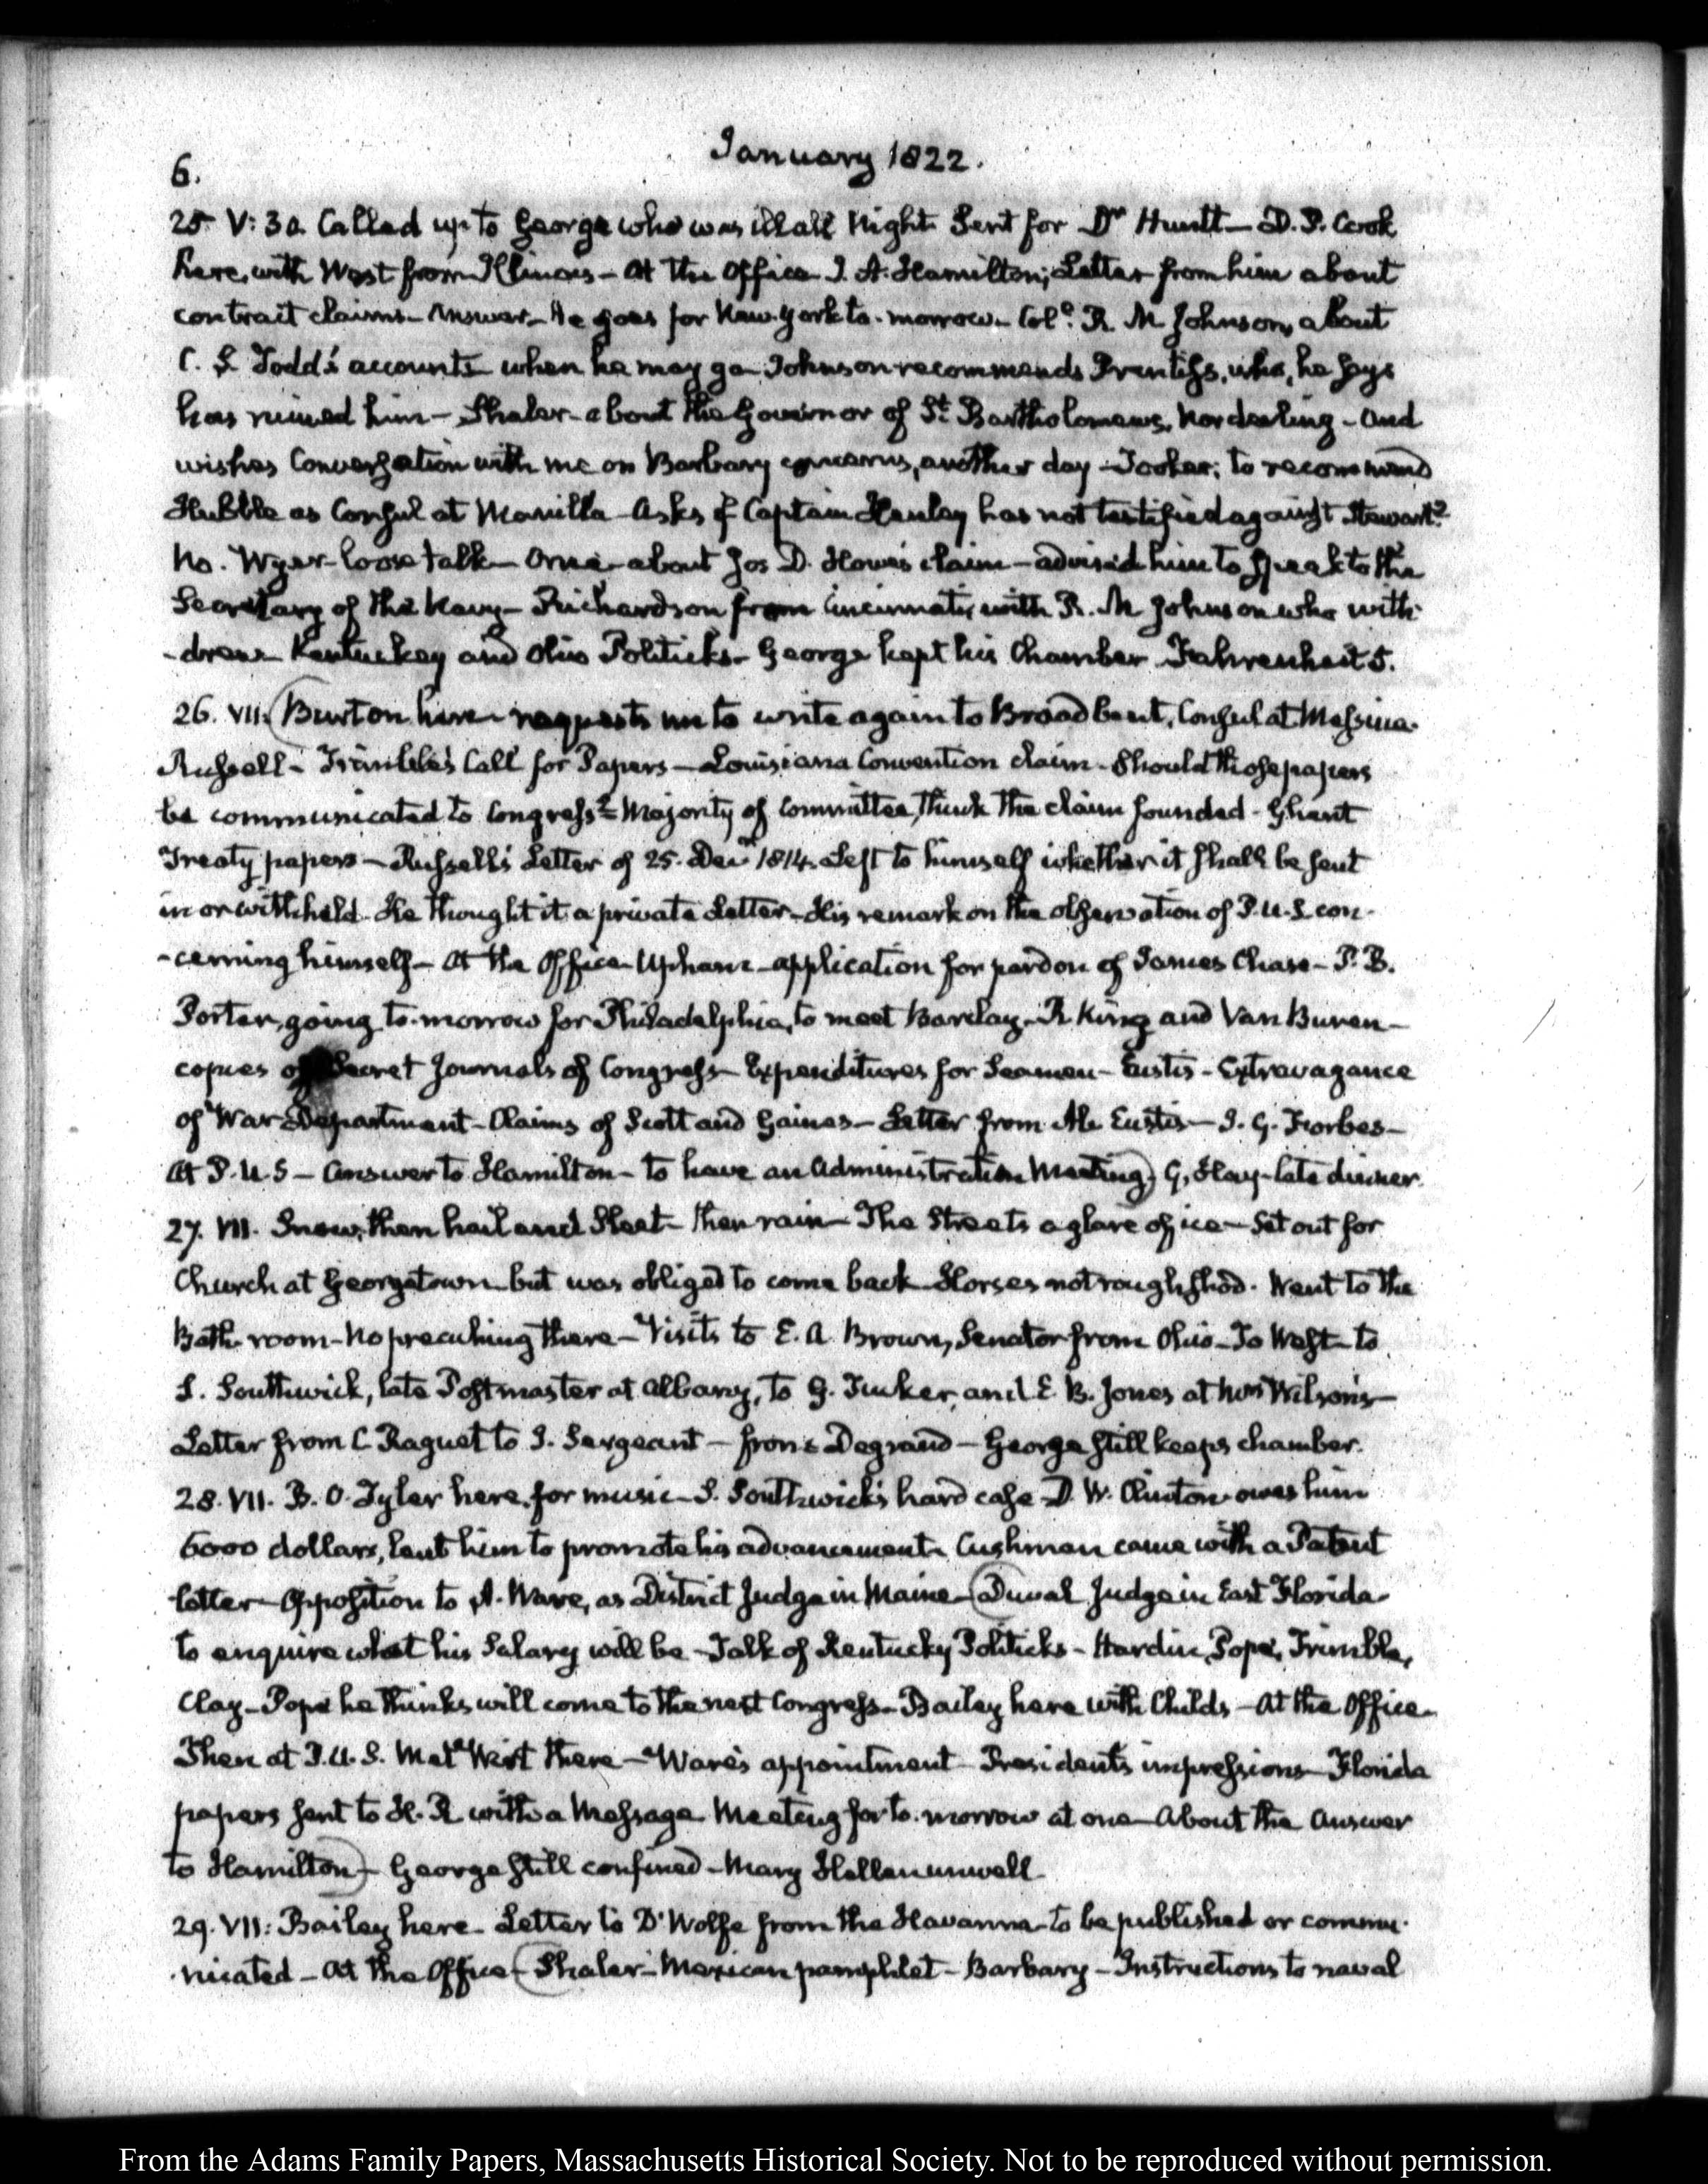 6.
January 1822.
25. V: 30. Called up to George who was ill all Night. Sent for Dr. Huntt— D. P. Cook
here, with West from Illinois— At the Office J. A. Hamilton; Letter from him about
contract claims— Answer— He goes for New-York to-morrow— Colo. R. M Johnson, about
C. S. Todd's accounts when he may go— Johnson recommends Prentiss, who, he says
has ruined him— Shaler— about the Governor of St. Bartholomews, Norderling— And
wishes Conversation with me on Barbary concerns, another day— Tooker: to recommend
Hubble as Consul at Manilla— Asks if Captain Henley has not testified against Stewart?
No. Wyer— loose talk— One about Jos D. Howe's claim— advised him to speak to the
Secretary of the Navy— Richardson from Cincinnati, with R. M Johnson who with-
-drew— Kentuckey and Ohio Politicks— George kept his Chamber. Fahrenheit 5.
26. VII. Burton here— requests me to write again to Broadbent, Consul at Messina.
Russell— Trimble's Call for Papers— Louisiana Convention claim— Should those papers
be communicated to Congress? Majority of Committee, think the claim founded— Ghent
Treaty papers— Russell's Letter of 25. Decr. 1814. Left to himself whether it shall be sent
in or withheld. He thought it a private Letter— His remark on the observation of P. U. S. con-
-cerning himself— At the Office Upham— application for pardon of James Chase— P. B.
Porter, going to-morrow for Philadelphia, to meet Barclay— R King and Van Buren—
copies of Secret Journals of Congress— Expenditures for Seamen— Eustis— Extravagance
of War Department— Claims of Scott and Gaines— Letter from A. Eustis— J. G. Forbes—
At P. U. S— Answer to Hamilton— to have an Administration Meeting) G, Hay— late dinner.
27. VII. Snow, then hail and Sleet— then rain— The Streets a glare of ice— Set out for
Church at Georgetown but was obliged to come back— Horses not rough shod. Went to the
Bath room— No preaching there— Visits to E. A. Brown, Senator from Ohio— To West— to
S. Southwick, late Postmaster at Albany, to G. Tucker, and E. B. Jones at Mrs Wilson's—
Letter from C Raguet to J. Sergeant— from Degrand— George still keeps chamber.
28. VII. B. O. Tyler here, for music— S. Southwick's hard case— D. W. Clinton owes him
6000 dollars, lent him to promote his advancement. Cushman came with a Patent
letter— Opposition to A. Ware, as District Judge in Maine— (Duval Judge in East Florida—
to enquire what his Salary will be— Talk of Kentucky Politicks— Hardin, Pope, Trimble,
Clay— Pope he thinks will come to the next Congress— Bailey here with Childs— At the Office—
Then at P. U. S. Met Wirt there— Ware's appointment— President's impressions— Florida
papers sent to H. R. with a Message— Meeting for to-morrow at one— About the Answer
to Hamilton)— George still confined— Mary Hellen unwell.
29. VII: Bailey here— Letter to D'Wolfe from the Havanna— to be published or commu-
-nicated— At the Office— (Shaler— Mexican pamphlet— Barbary— Instructions to naval
From the Adams Family Papers, Massachusetts Historical Society. Not to be reproduced without permission.